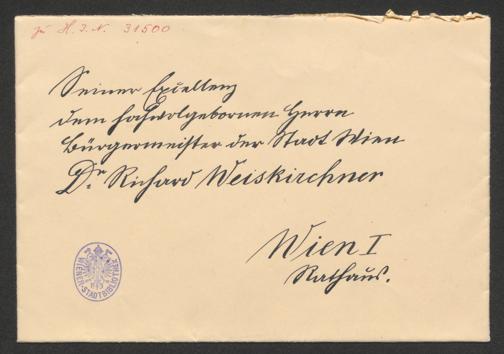 zu H. I. N. 31500
Seiner Exzellenz
dem hochwolgebornen Herrn
Bürgermeister der Stadt Wien
Dr. Richard Weiskirchner
Wien I
Rathaus.
WIENER STADTBIBLIOTHEK